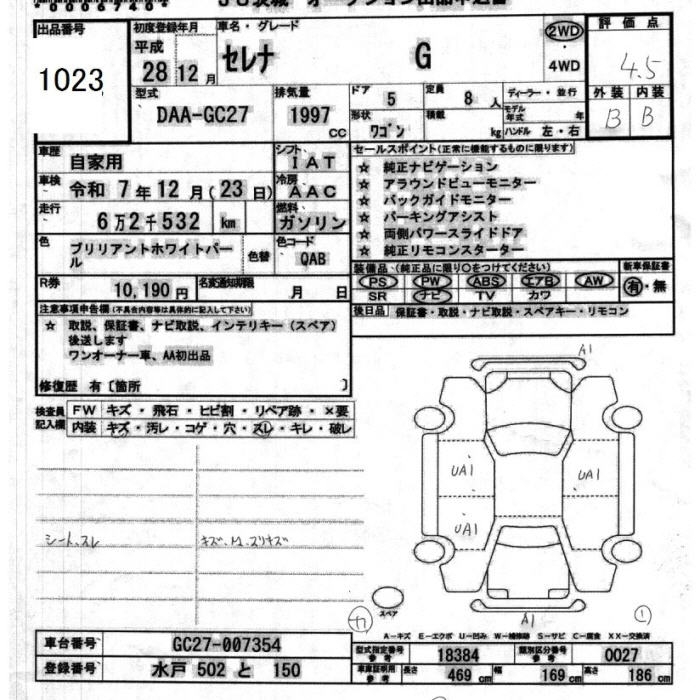 出品番号
1023
初度登録年月
平成
28 12 月
車名・グレード
セレナ G
2WD
・
4WD
評価点
4.5
外装 内装
B B
型式
DAA-GC27
排気量
1997
CC
ドア
5
定員
8 人
形状
ワゴン
積載
kg
ディーラー・並行
モデル年式 年
ハンドル 左・右
車歴
自家用
シフト
IAT
車検
令和 7 年 12 月 ( 23 日)
冷房
AAC
走行
6万2千532 km
燃料
ガソリン
色
ブリリアントホワイトパール
色替
色コード
QAB
R券
10,190 円
名変通知期限
月 日
セールスポイント(正常に機能するものに限ります)
☆ 純正ナビゲーション
☆ アラウンドビューモニター
☆ バックガイドモニター
☆ パーキングアシスト
☆ 両側パワースライドドア
☆ 純正リモコンスターター
装備品、(純正品に限り○をつけてください)
PS PW ABS エアB AW
SR ナビ TV カワ
新車保証書
有・無
後日品 保証書・取説・ナビ取説・スペアキー・リモコン
注意事項申告欄(不具合内容等は具体的に記入して下さい)
☆ 取説、保証書、ナビ取説、インテリキー(スペア)
後送します
ワンオーナー車、AA初出品
修復歴 有〔箇所 〕
検査員記入欄
FW キズ・飛石・ヒビ割・リペア跡・×要
内装 キズ・汚レ・コゲ・穴・スレ・キレ・破レ
シート、スレ
A1
UA1
UA1
UA1
A1
スペア
A-キズ E-エクボ U-凹み W-補修跡 S-サビ C-腐食 XX-交換済
車台番号 GC27-007354
登録番号 水戸 502 と 150
型式指定番号 参考 18384
類別区分番号 参考 0027
車庫証明用 参考 長さ 469 cm 幅 169 cm 高さ 186 cm